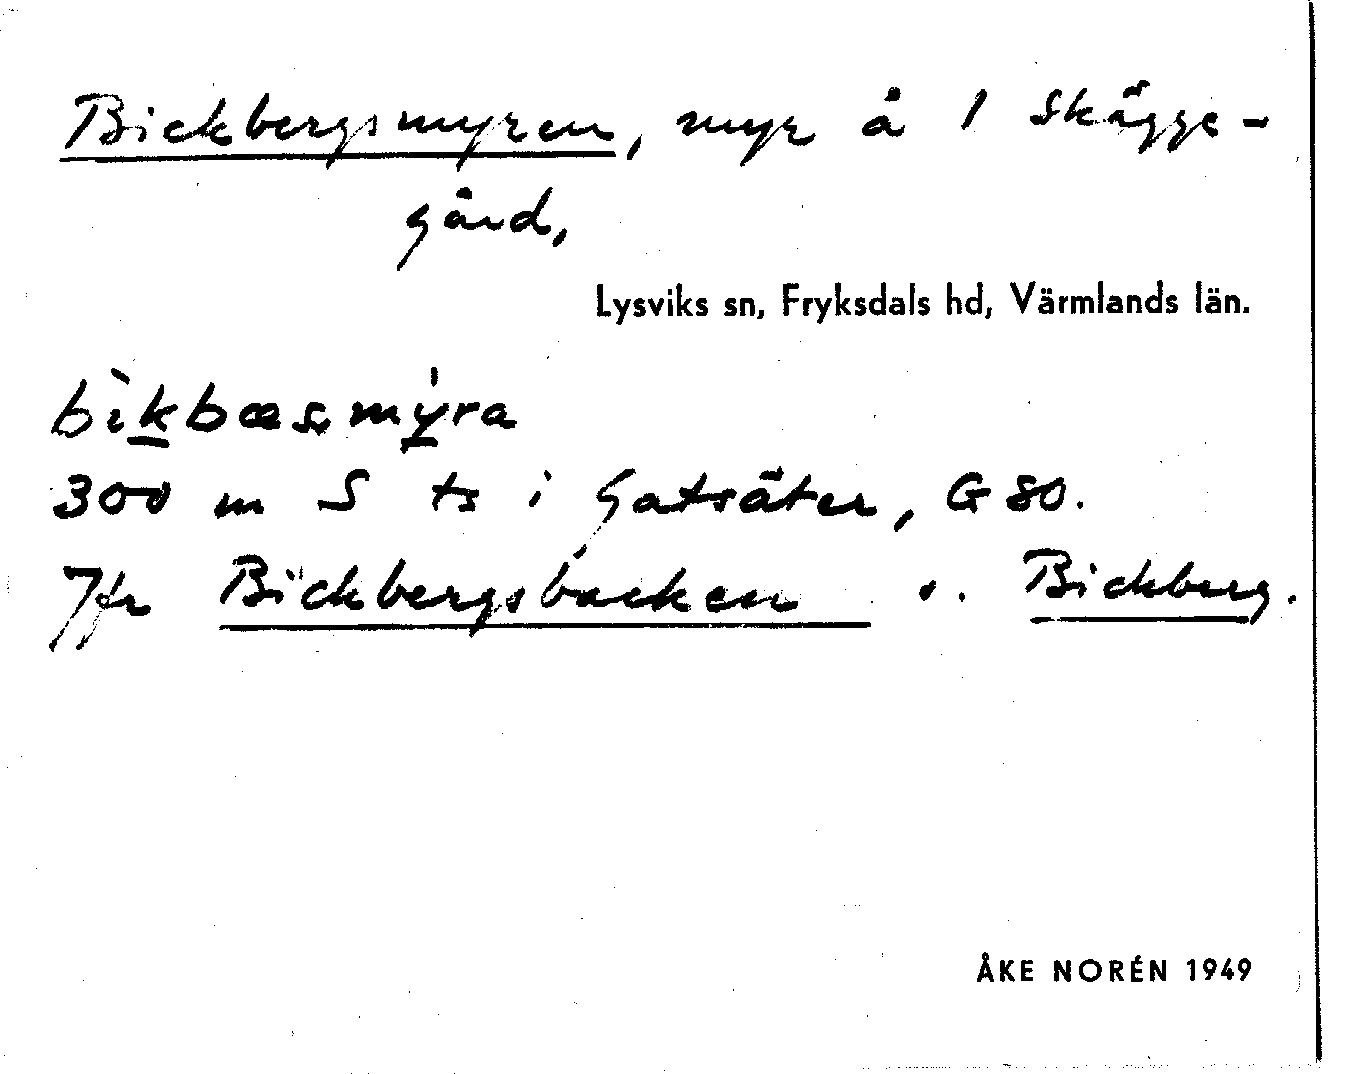 Bickbergsmyren, myr å 1 Skägge-
gård,
Lysviks sn, Fryksdals hd, Värmlands län.
bìkbæsmy̍ra
300 m S ts i Gatsäter, G 80.
Jfr Bickbergsbacken o. Bickberg.
ÅKE NORÉN 1949